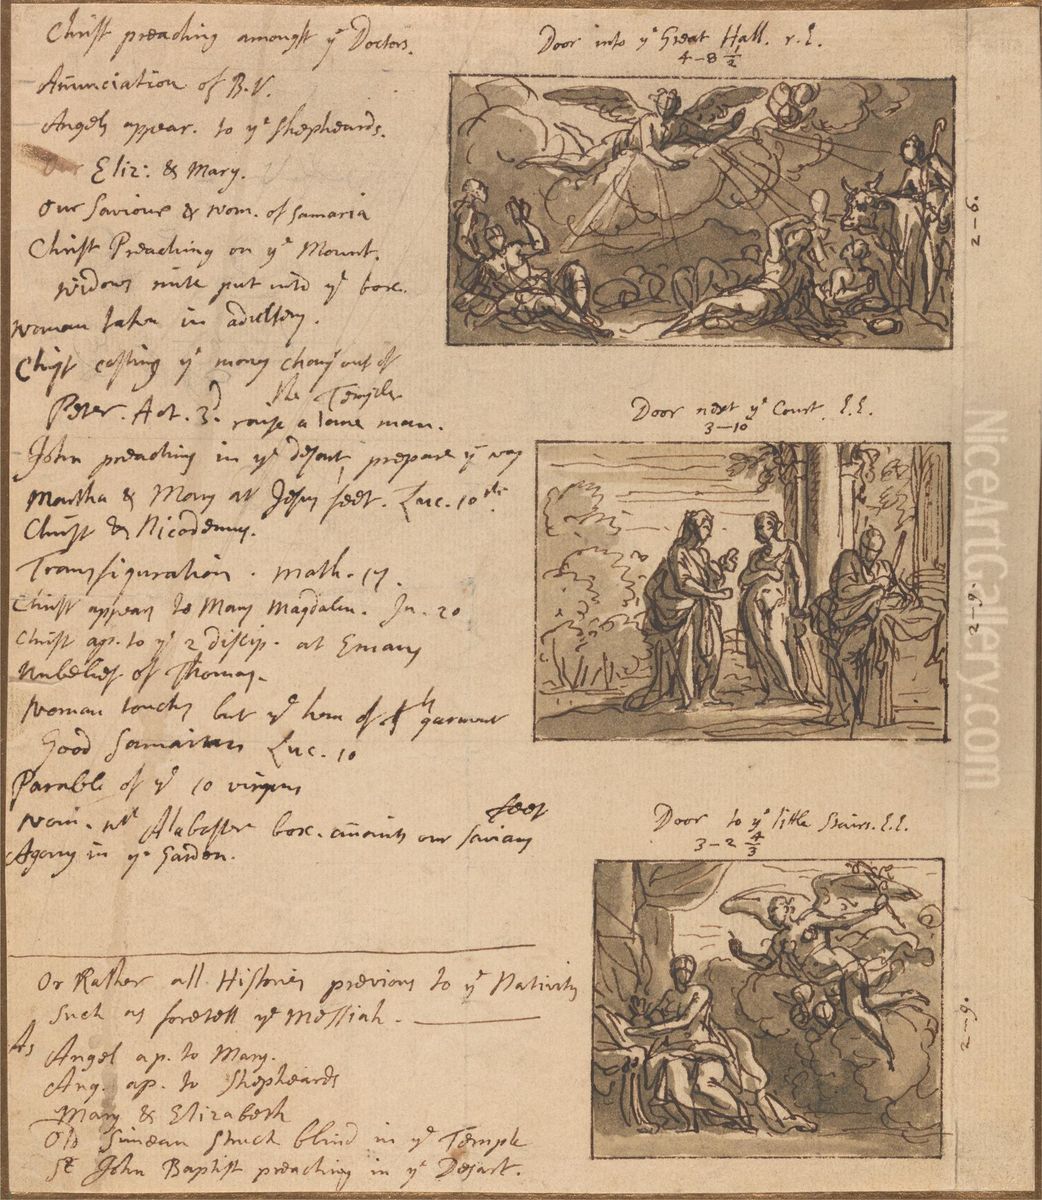 Christ preaching amongst yͤ Doctors.
Anunciation of B.V.
Angels appear. to yͤ Shepheards.
Eliz: & Mary.
Our Saviour & wom. of Samaria
Christ Preaching on yͤ Mount.
widows mite put into yͤ box.
woman taken in adultery.
Christ casting yͤ mony chang out of
the Temple
Peter. Act. 3d. rause a lame man.
John preaching in yͤ desart, prepare yͤ way
Martha & Mary at Jesus feet. Luc. 10th
Christ & Nicodemus.
Transfiguration. Math. 17.
Christ appears to Mary Magdalen. Jn. 20
Christ ap. to yͤ 2 discip. at Emaus
Unbelief of Thomas.
Woman touchs but yͤ hem of garment
Good Samaritan Luc. 10
Parable of yͤ 10 virgins
wom. wt Alabaster box. anoints our saviours
feet
Agony in yͤ Garden.
Or Rather all Histories previous to yͤ Nativity
Such as foretell yͤ Messiah.
As
Angel ap. to Mary.
Ang. ap. to Shepheards
Mary & Elizabeth
Old Simean struck blind in yͤ Temple
St John Baptist preaching in yͤ Desart.
Door into yͤ Great Hall. r. E.
4-8 1/2
2-6.
Door next yͤ Court. E.E.
3-10
2-9.
Door to yͤ little Stairs. E.E.
3-2 4/3
2-9.
NiceArtGallery.com